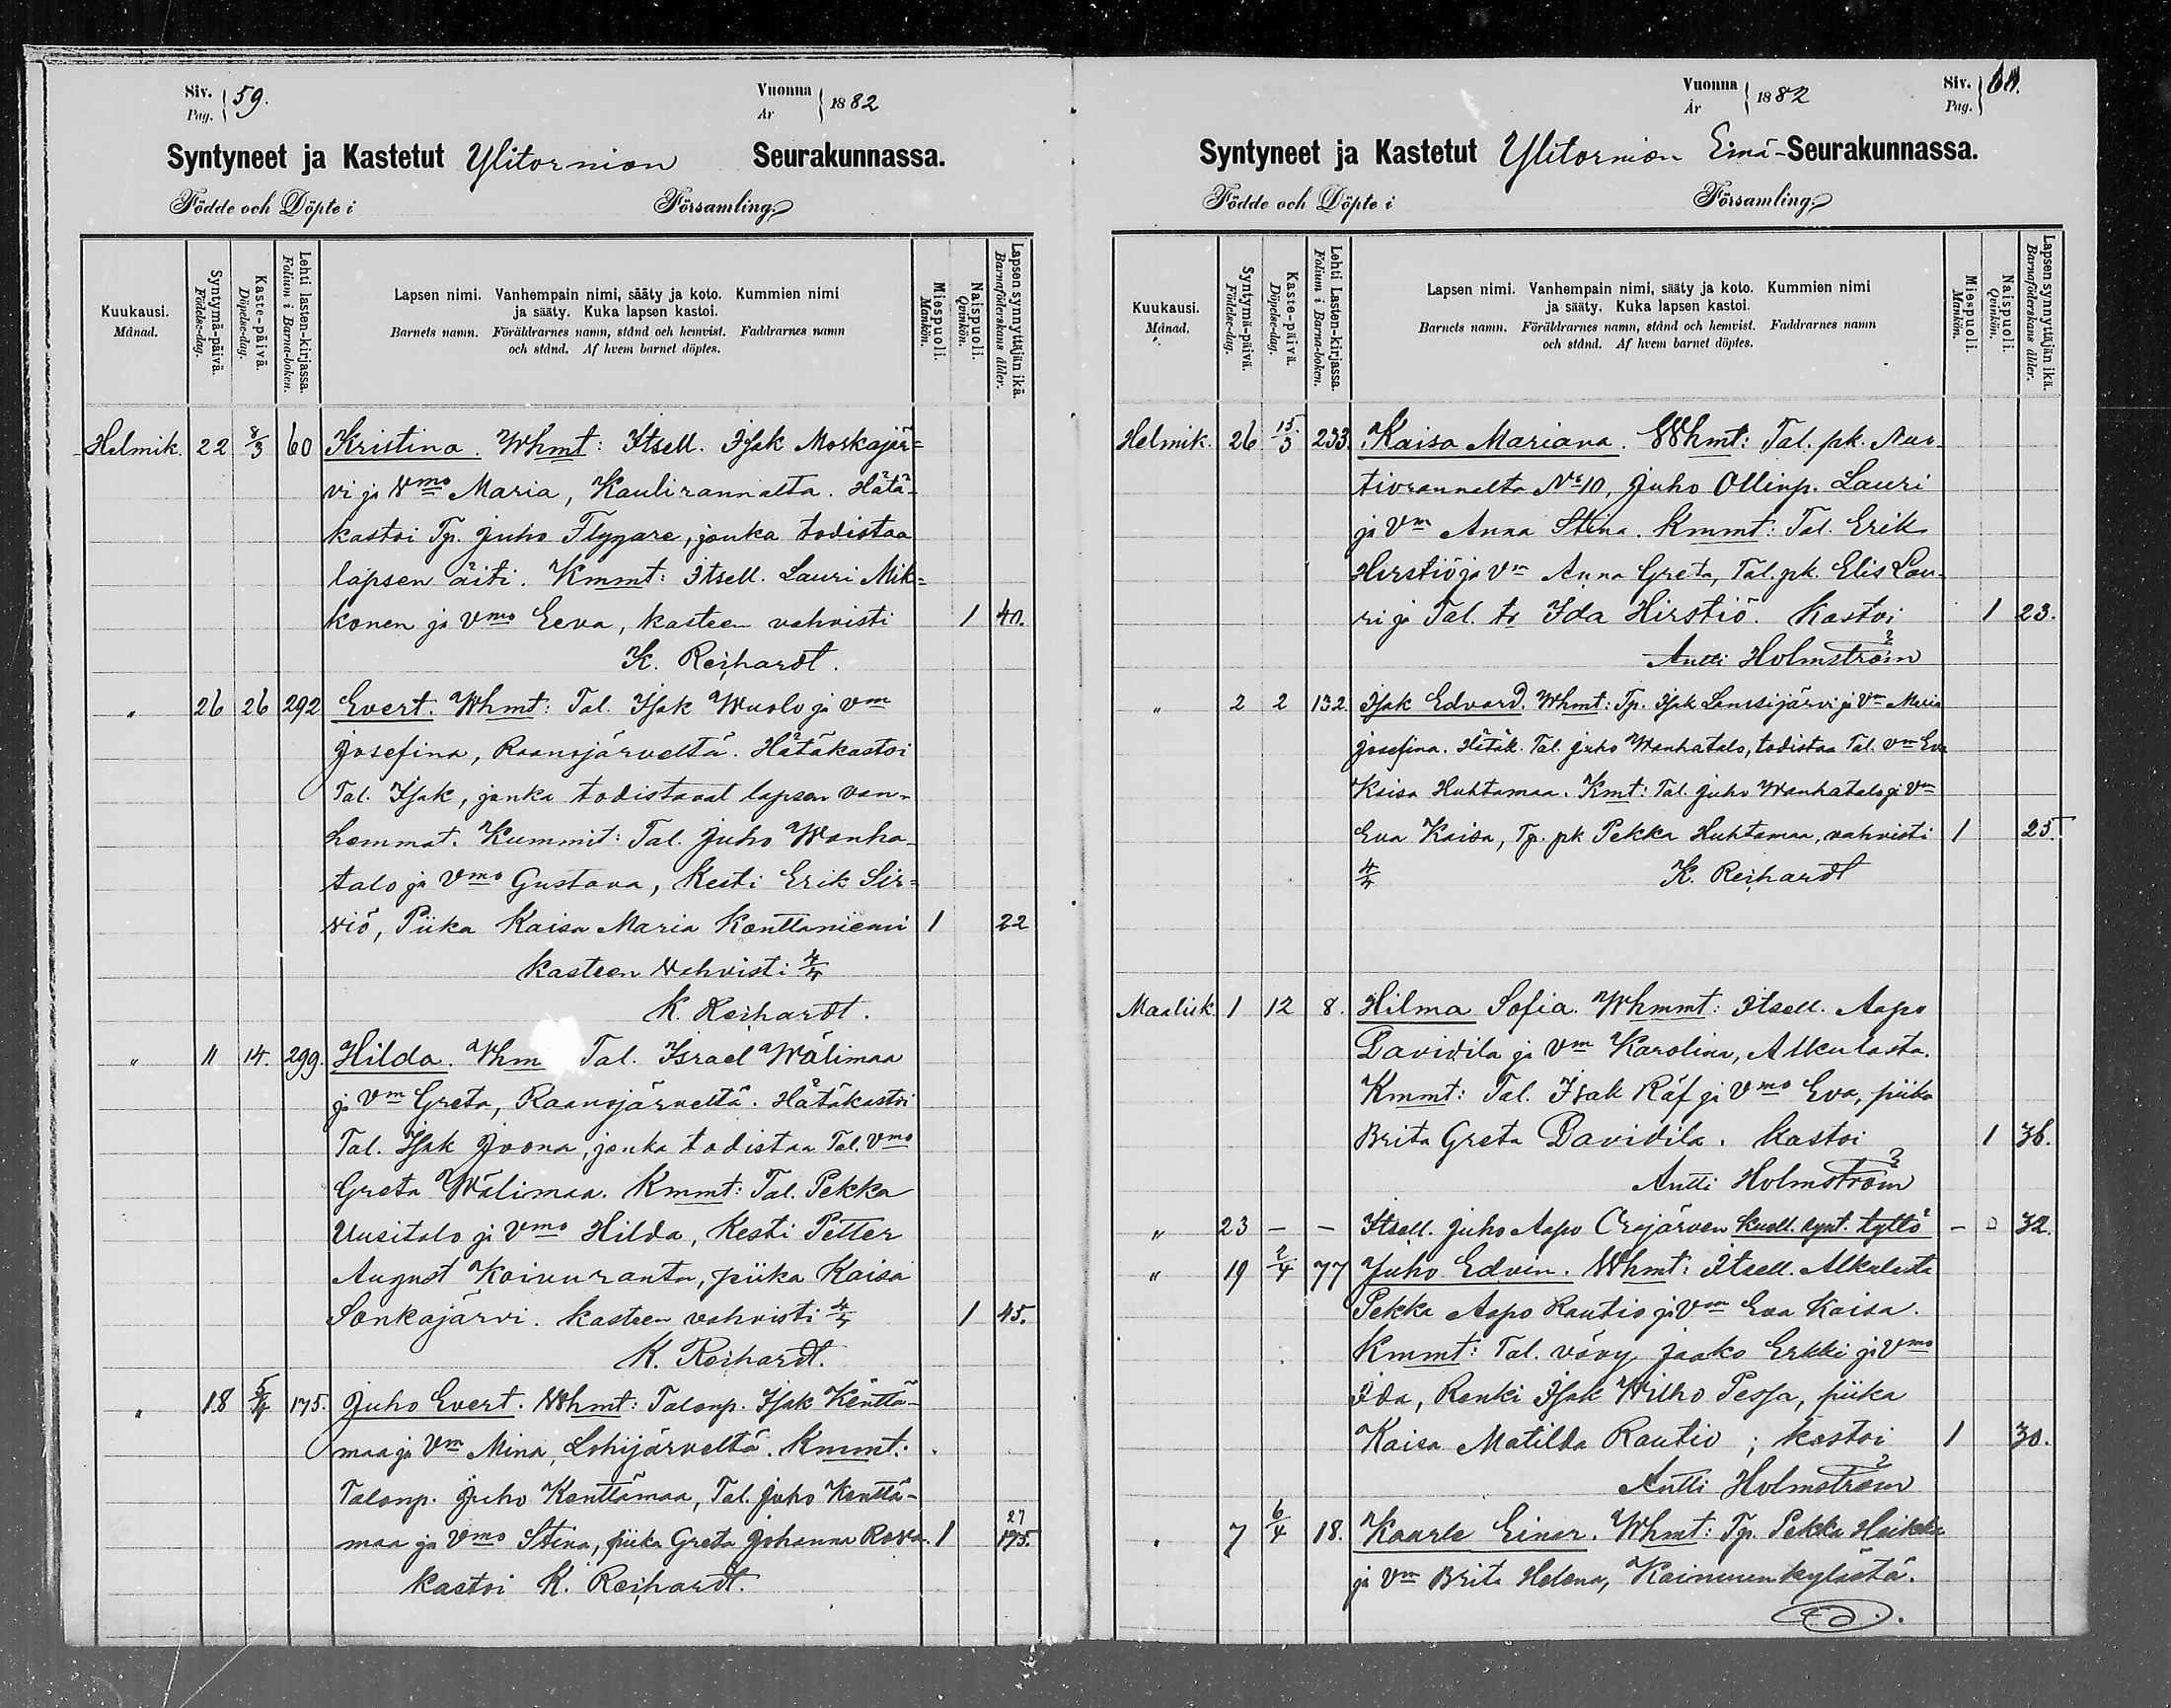 Siv. Pag. 59.
Vuonna År 1882
Syntyneet ja Kastetut Ylitornion Seurakunnassa.
Födde och Döpte i Församling.
Kuukausi. Månad.
Syntymä-päivä. Födelse-dag.
Kaste-päivä. Döpelse-dag.
Lehti lasten-kirjassa. Folium i Barna-boken.
Lapsen nimi. Vanhempain nimi, sääty ja koto. Kummien nimi
ja sääty. Kuka lapsen kastoi.
Barnets namn. Föräldrarnes namn, stånd och hemvist. Faddrarnes namn
och stånd. Af hvem barnet döptes.
Miespuoli. Mankön.
Naispuoli. Qvinkön.
Lapsen synnyttäjän ikä. Barnaföderskans ålder.
Helmik. 22 8/3 60 Kristina. Whmt: Itsell. Isak Moskajär=
vi ja Vmo Maria, Kaulirannalta. Hätä-
kastoi Tp. Juho Flygare, jonka todistaa
lapsen äiti. Kmmt: Itsell. Lauri Mik=
konen ja Vmo Eeva, kasteen vahvisti 1 40.
K. Reihardt.
" 26 26 292 Evert. Whmt: Tal. Isak Wuolo ja Vm
Josefina, Raanojärveltä. Hätäkastoi
Tal. Isak, jonka todistavat lapsen van-
hemmat. Kummit: Tal. Juho Wanha-
talo ja Vmo Gustava, Kesti Erik Sir=
viö, Piika Kaisa Maria Konttaniemi 1 22
kasteen vahvisti 4/4
K. Reihardt.
" 11 14. 299. Hilda. Whm Tal. Israel Wälimaa
ja Vm Greta, Raanojärveltä. Hätäkastoi
Tal. Isak Joona, jonka todistaa Tal. Vmo
Greta Wälimaa. Kmmt: Tal. Pekka
Uusitalo ja Vmo Hilda, Kesti Petter
August Koivuranta, piika Kaisa
Sonkajärvi. kasteen vahvisti 4/4 1 45.
K. Reihardt.
" 18 5/4 175. Juho Evert. Whmt: Talonp. Isak Kenttä-
maa ja Vm Mina, Lohijärveltä. Kmmt:
Talonp. Juho Kenttämaa, Tal. Juho Kenttä-
maa ja Vmo Stina, piika Greta Johanna Rova. 1 27 175.
Kastoi K. Reihardt.
Vuonna År 1882
Siv. Pag. 60.
Syntyneet ja Kastetut Ylitornion Emä-Seurakunnassa.
Födde och Döpte i Församling.
Kuukausi. Månad.
Syntymä-päivä. Födelse-dag.
Kaste-päivä. Döpelse-dag.
Lehti Lasten-kirjassa. Folium i Barna-boken.
Lapsen nimi. Vanhempain nimi, sääty ja koto. Kummien nimi
ja sääty. Kuka lapsen kastoi.
Barnets namn. Föräldrarnes namn, stånd och hemvist. Faddrarnes namn
och stånd. Af hvem barnet döptes.
Miespuoli. Mankön.
Naispuoli. Qvinkön.
Lapsen synnyttäjän ikä. Barnaföderskans ålder.
Helmik. 26 15/3 233. Kaisa Mariana. Whmt: Tal. pk. Nuo-
tiorannalta No 10, Juho Ollinp. Lauri
ja Vm Anna Stina. Kmmt: Tal. Erik
Hirstiö ja Vm Anna Greta, Tal. pk. Elis Lau-
ri ja Tal. tr Ida Hirstiö. Kastoi 1 23.
Antti Holmström
" 2 2 132. Isak Edvard. Whmt: Tp. Isak Lanssijärvi ja Vm Maria
Josefina. Hätäk. Tal. Juho Wanhatalo, todistaa Tal. Vm Eva
Kaisa Huhtamaa. Kmt: Tal. Juho Wanhatalo ja Vm
Eva Kaisa, Tp. pk Pekka Huhtamaa, vahvisti 1 25.
4/4 K. Reihardt
Maalisk 1 12 8. Hilma Sofia. Whmmt: Itsell. Aapo
Davidila ja Vm Karolina, Alkulasta.
Kmmt: Tal. Isak Räf ja Vmo Eva, piika
Brita Greta Davidila. Kastoi 1 36.
Antti Holmström
" 23 — — Itsell. Juho Aapo Orajärven kuoll. synt. tyttö - 0 32.
" 19 2/4 77 Juho Edvin. Whmt: Itsell. Alkulasta
Pekka Aapo Rautio ja Vm Eva Kaisa.
Kmmt: Tal. vävy Jaako Erkki ja Vmo
Ida, Renki Isak Wilho Pessa, piika
Kaisa Matilda Rautio; kastoi 1 30.
Antti Holmström
" 7 6/4 18. Kaarle Einar. Whmt: Tp. Pekka Heikka
ja Vm Brita Helena, Kainuunkylästä.